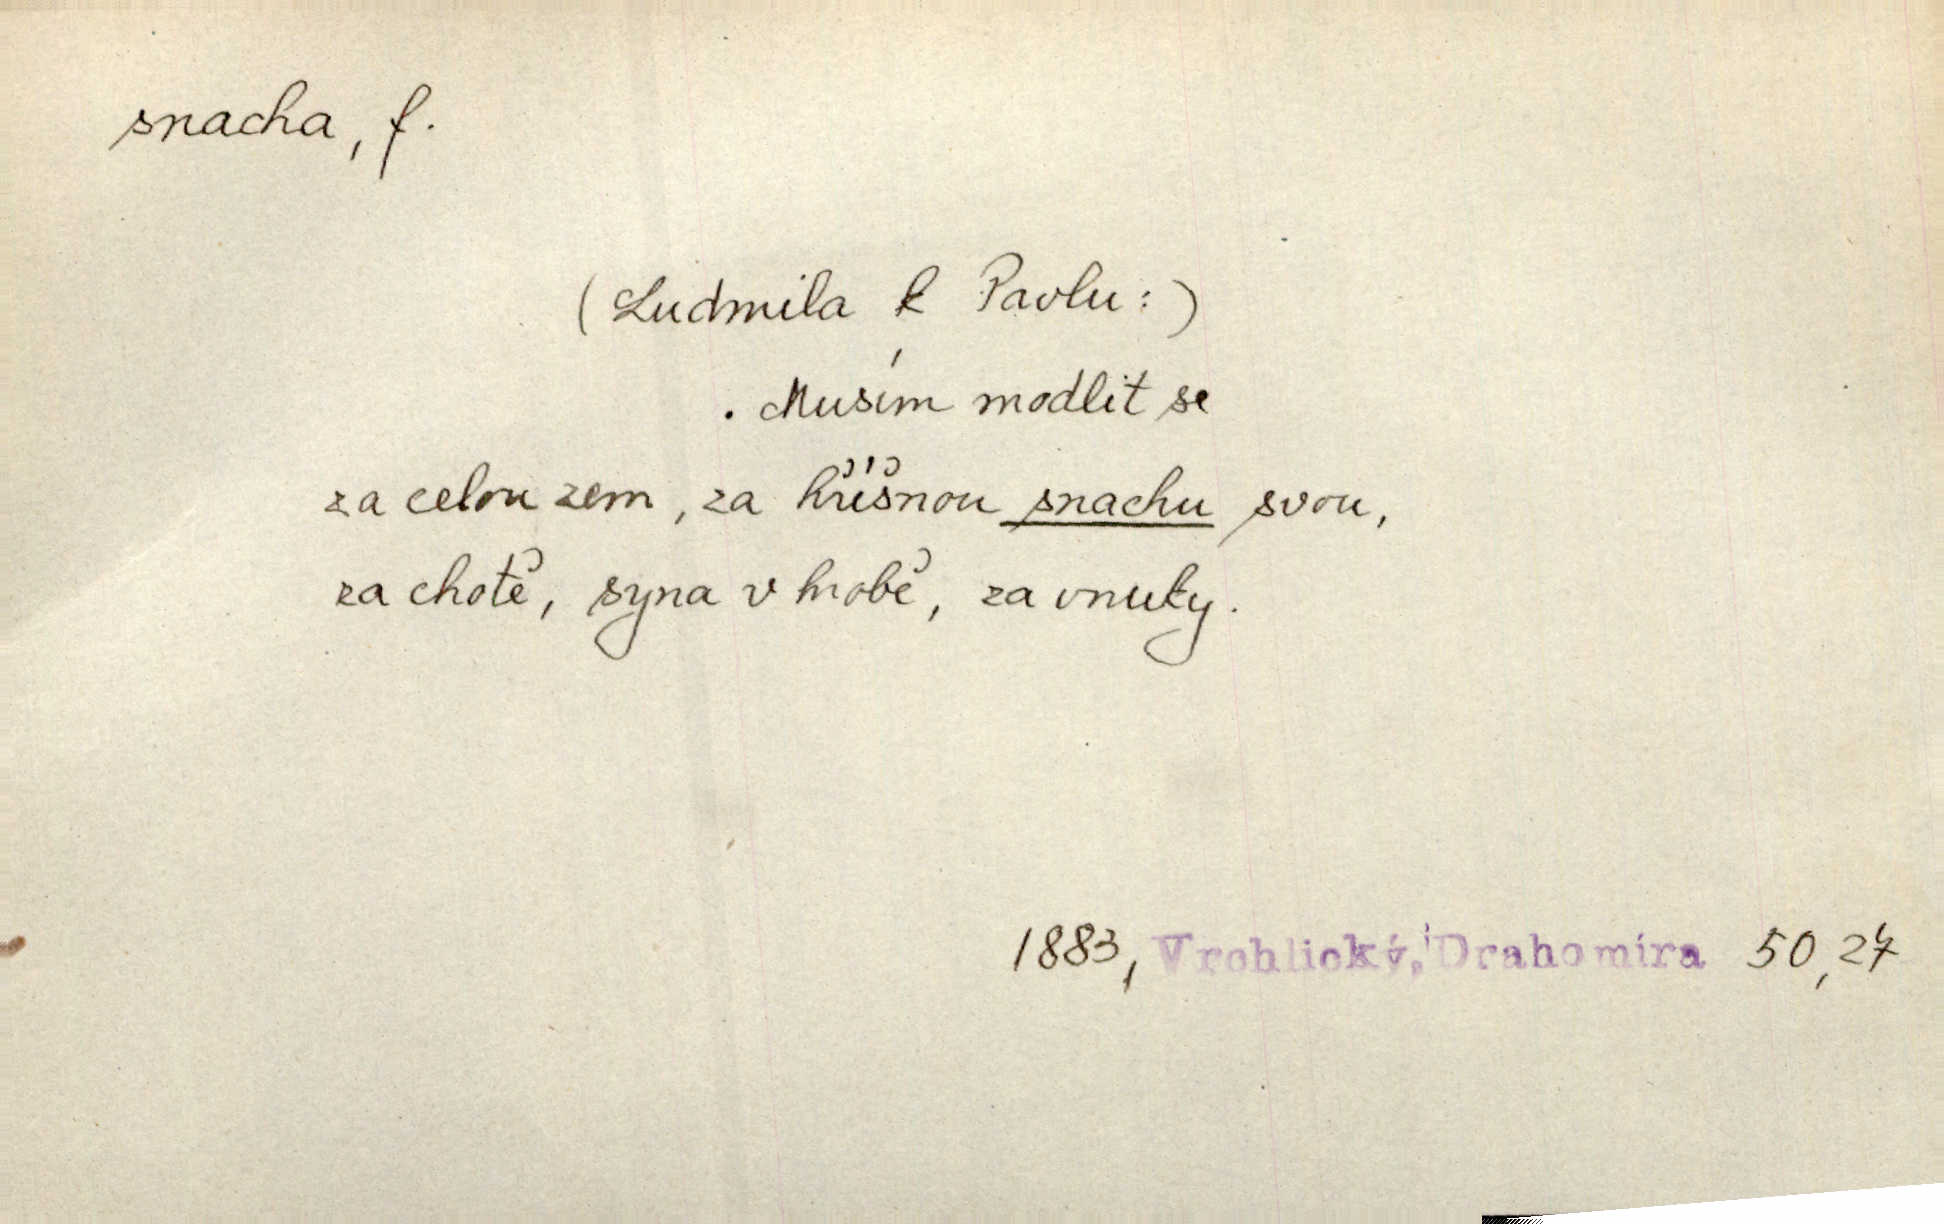 snacha, f.
(Ludmila k Pavlu:)
. Musím modlit se
za celou zem, za hříšnou snachu svou,
za chotě, syna v hrobě, za vnuky.
1883, Vrchlický, Drahomíra 50,24